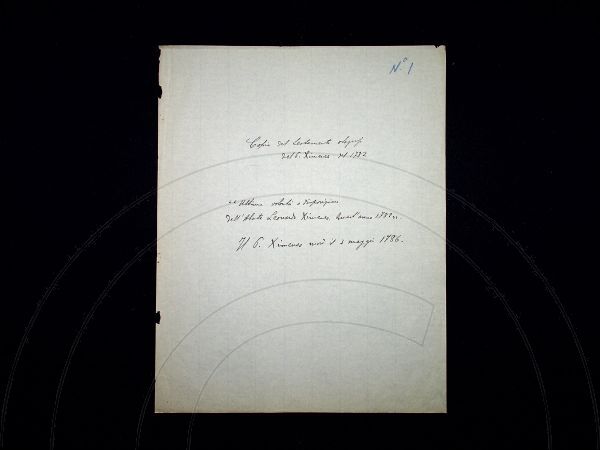 N.º 1
Copia del testamento olografo
del P. Ximenes del 1782
"Ultima volontà e disposizione
dell'Abate Leonardo Ximenes quest'anno 1782".
Il P. Ximenes morì il 3 maggio 1786.